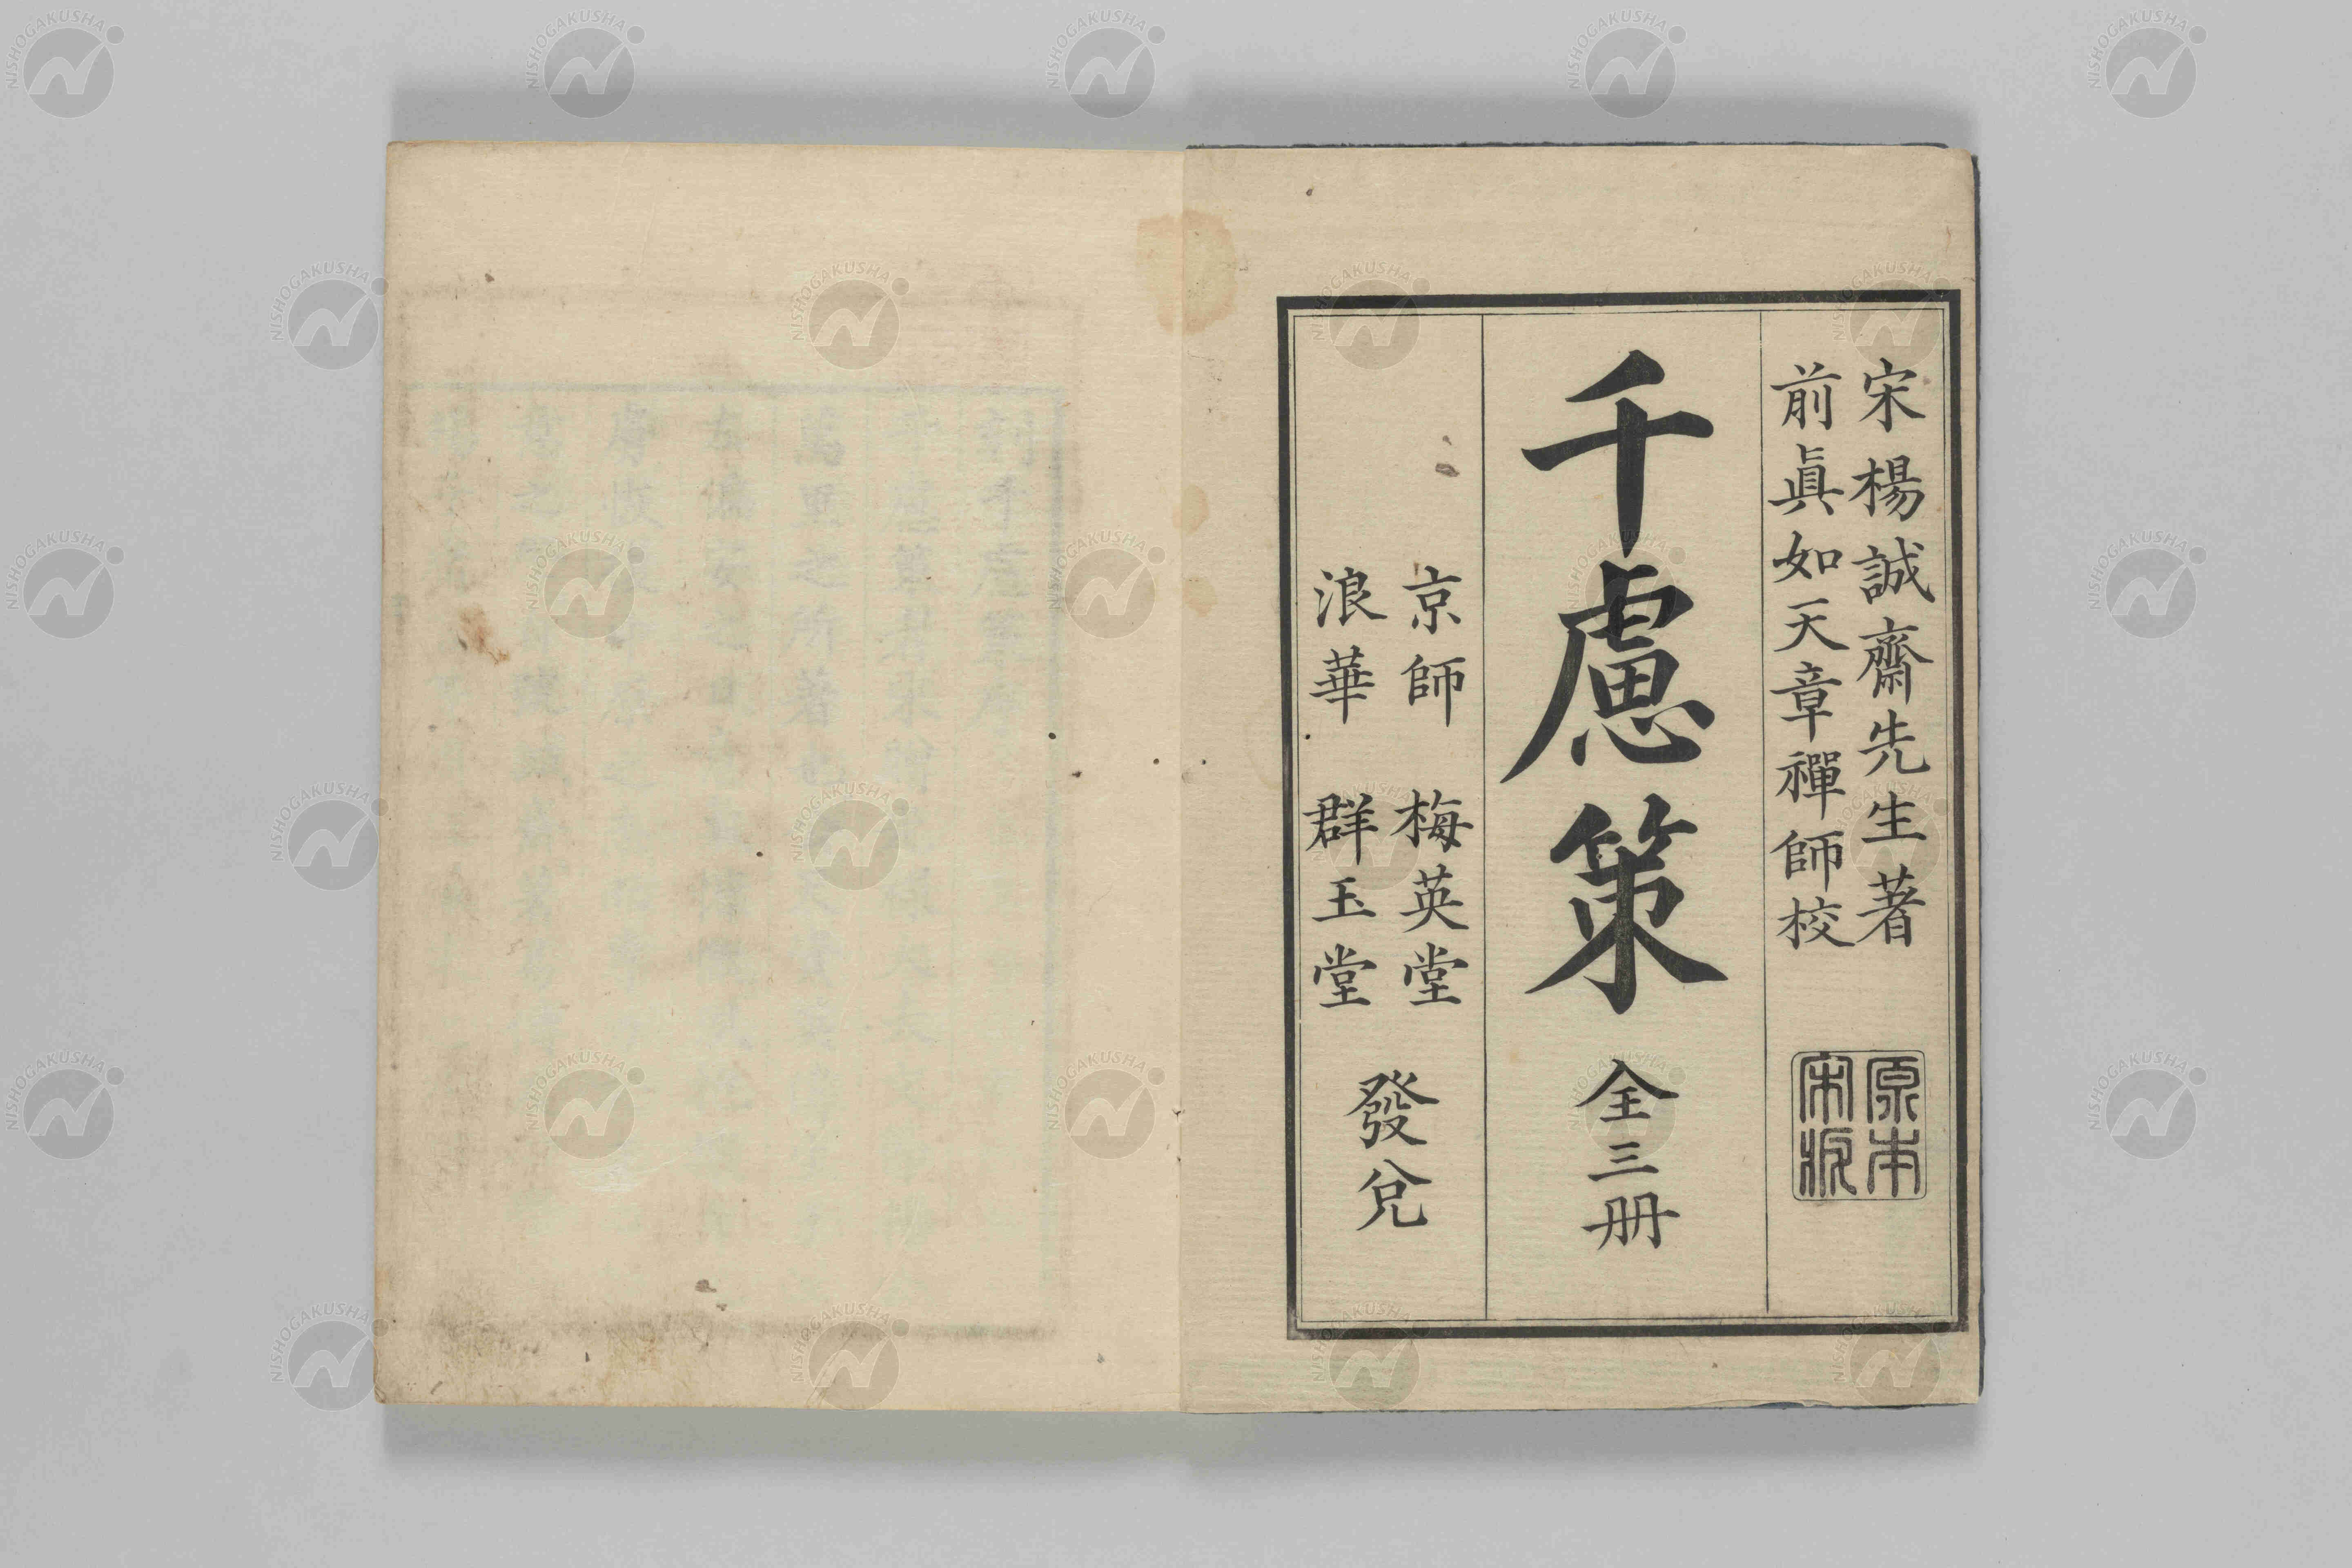 宋楊誠齋先生著
前眞如天章禪師校
原本
宋板
千慮策 全三册
京師 梅英堂
浪華 群玉堂
發兌
NISHOGAKUSHA